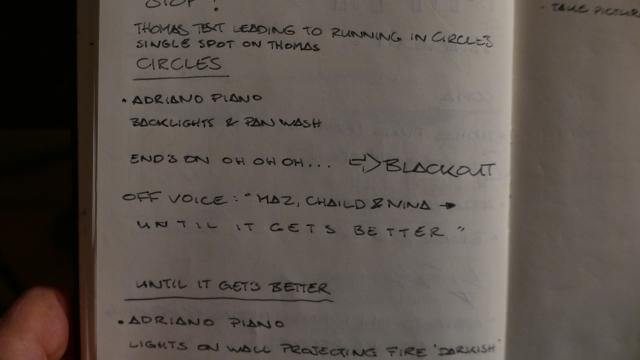 STOP!
THOMAS TEXT LEADING TO RUNNING IN CIRCLES
SINGLE SPOT ON THOMAS
CIRCLES
• ADRIANO PIANO
BACKLIGHTS & PAN WASH
END'S ON OH OH OH... => BLACKOUT
OFF VOICE: "MAZ, CHAILD & NINA →
UNTIL IT GETS BETTER"
UNTIL IT GETS BETTER
• ADRIANO PIANO
LIGHTS ON WALL PROJECTING FIRE 'DARKISH'
• TAKE PICTUR